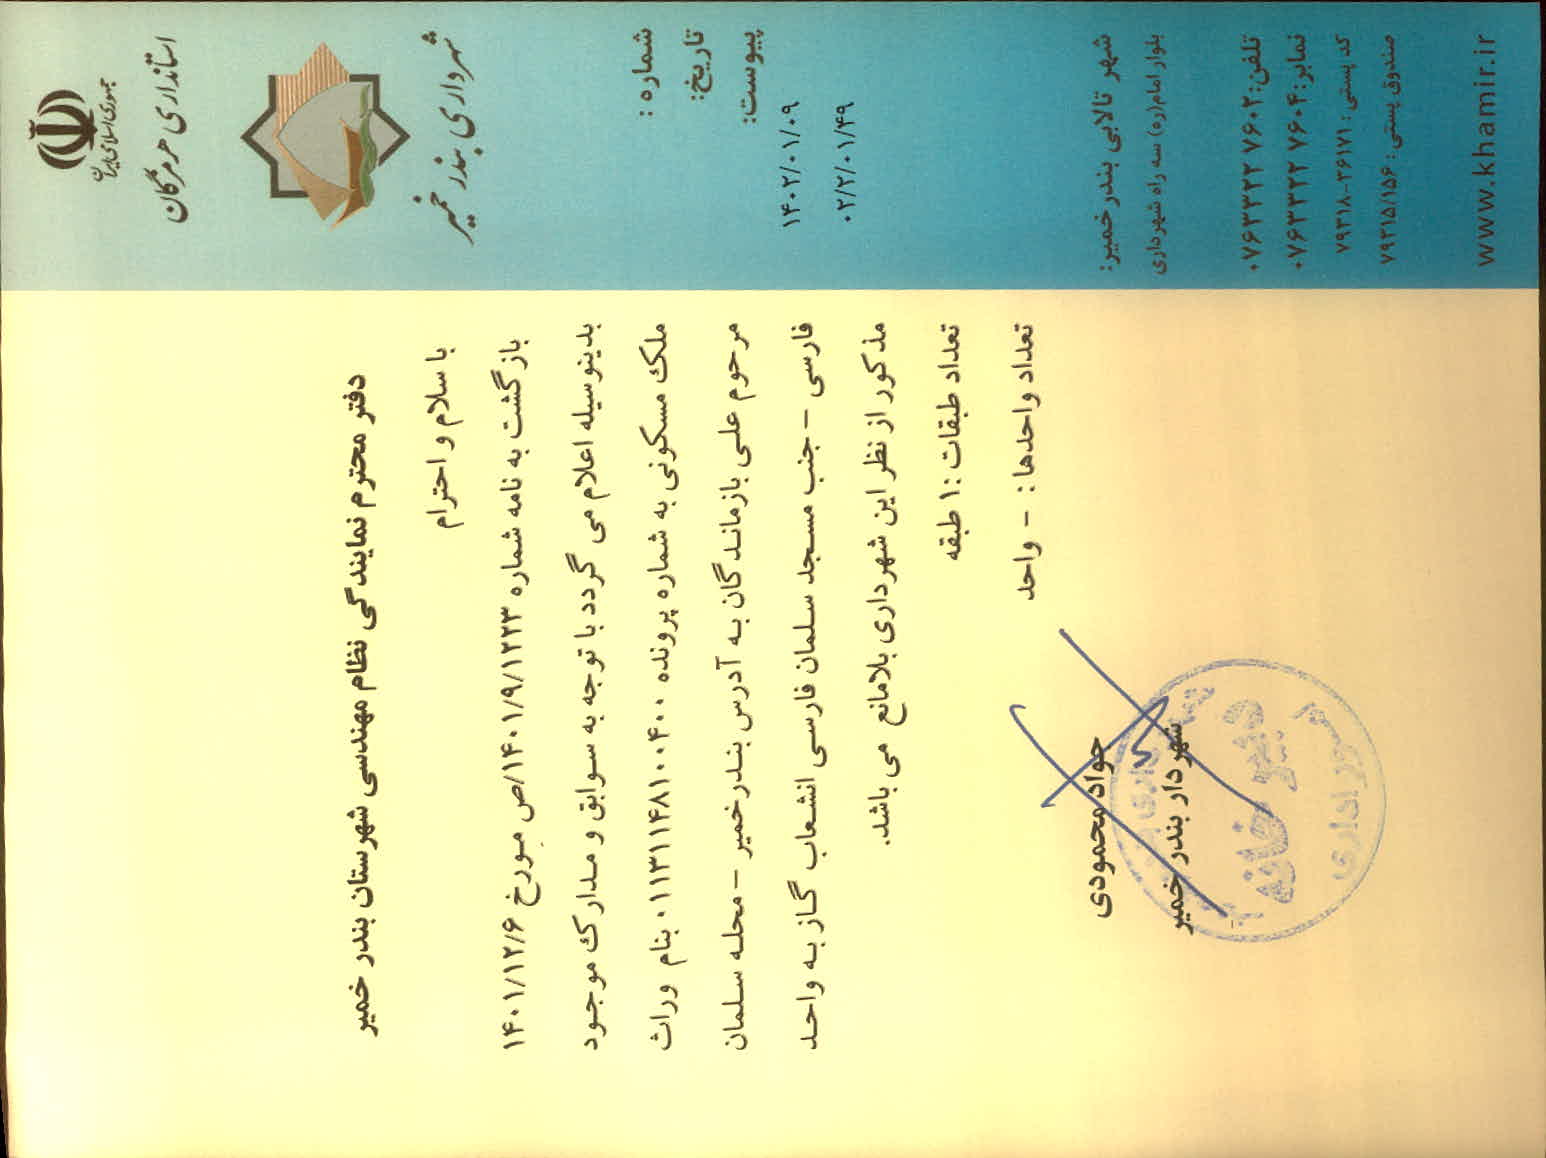 جمهوری اسلامی ایران
استانداری هرمزگان
شهرداری بندر خمیر
شماره :
تاریخ:
پیوست:
۱۴۰۲/۰۱/۰۹
۰۲/۲/۰۱/۴۹
دفتر محترم نمایندگی نظام مهندسی شهرستان بندر خمیر
با سلام و احترام
بازگشت به نامه شماره ۱۴۰۱/۹/۱۲۲۳/ص مورخ ۱۴۰۱/۱۲/۶
بدینوسیله اعلام می گردد با توجه به سوابق و مدارک موجود
ملک مسکونی به شماره پرونده ۰۱۱۳۱۱۴۸۱۰۰۴۰۰ بنام وراث
مرحوم علی بازماندگان به آدرس بندرخمیر - محله سلمان
فارسی - جنب مسجد سلمان فارسی انشعاب گاز به واحد
مذکور از نظر این شهرداری بلامانع می باشد.
تعداد طبقات :۱ طبقه
تعداد واحدها : - واحد
جواد محمودی
شهردار بندر خمیر
دبیرخانه
امور اداری
شهر تالابی بندر خمیر:
بلوار امام(ره) سه راه شهرداری
تلفن: ۰۷۶۳۳۲۲ ۷۶۰۲
نمابر: ۰۷۶۳۳۲۲ ۷۶۰۴
کد پستی : ۷۹۳۱۸-۳۶۱۷۱
صندوق پستی : ۷۹۳۱۵/۱۵۶
www.khamir.ir